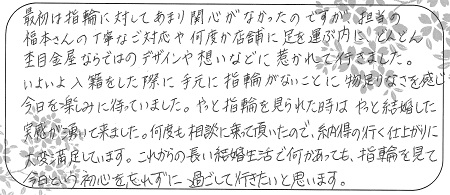 最初は指輪に対してあまり関心がなかったのですが、担当の
福本さんの丁寧なご対応や何度か店舗に足を運ぶ内に、どんどん
杢目金屋ならではのデザインや想いなどに惹かれて行きました。
いよいよ入籍をした際に手元に指輪がないことに物足りなさを感じ
今日を楽しみに待っていました。やっと指輪を見られた時はやっと結婚した
実感が湧いて来ました。何度も相談に乗って頂いたので、納得の行く仕上がりに
大変満足しています。これからの長い結婚生活で何かあっても、指輪を見て
今日という初心を忘れずに過ごして行きたいと思います。